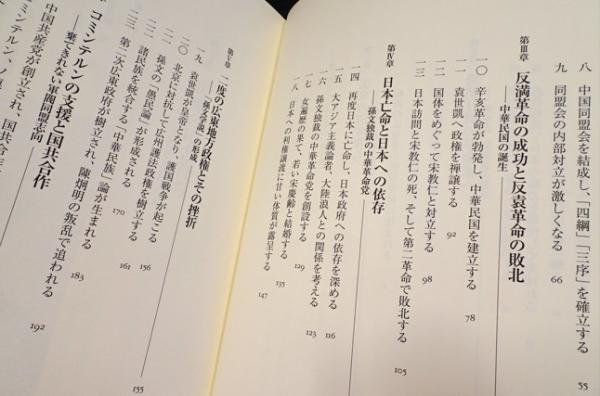 八　中国同盟会を結成し、「四綱」「三序」を確立する　55
九　同盟会の内部対立が激しくなる　66
第Ⅲ章　反満革命の成功と反袁革命の敗北
——中華民国の誕生
一〇　辛亥革命が勃発し、中華民国を建立する　78
一一　袁世凱へ政権を禅譲する　92
一二　国体をめぐって宋教仁と対立する　98
一三　日本訪問と宋教仁の死、そして第二革命で敗北する　105
第Ⅳ章　日本亡命と日本への依存
——孫文独裁の中華革命党
一四　再度日本に亡命し、日本政府への依存を深める　116
一五　大アジア主義論者、大陸浪人との関係を考える　123
一六　孫文独裁の中華革命党を創設する　129
一七　女遍歴の果て、若い宋慶齢と結婚する　135
一八　日本への利権譲渡に甘い体質が露呈する　147
第Ⅴ章　二度の広東地方政権とその挫折
——『孫文学説』の完成　155
一九　袁世凱が皇帝となり、護国戦争が起こる　156
二〇　北京に対抗して広州護法政権を樹立する　161
二一　孫文の「愚民論」が形成される　170
二二　諸民族を統合する「中華民族」論が生まれる　183
二三　第二次広東政府が樹立され、陳炯明の叛乱で追われる　192
コミンテルンの支援と国共合作
——棄てきれない軍閥同盟志向
中国共産党が創立され、国共合